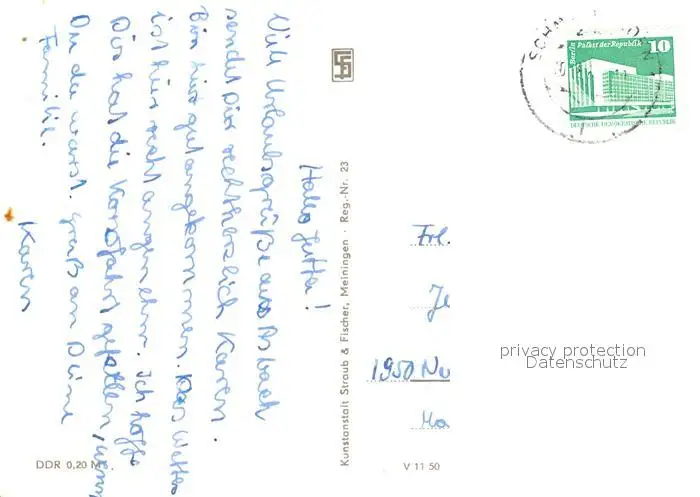 Hallo Jutta!
Viele Urlaubsgrüße aus Asbach
sendet Dir recht herzlich Karen.
Bin hier gut angekommen. Das Wetter
ist hier recht angenehm. Ich hoffe
Dir hat die Kanufahrt gefallen, wenn
Du da warst. Gruß an Deine
Familie.
Karen
DDR 0,20 M
Kunstanstalt Straub & Fischer, Meiningen · Reg.-Nr. 23
V 11 50
Berlin Palast der Republik 10
DEUTSCHE DEMOKRATISCHE REPUBLIK
SCHM
Frl.
Je
1950 Nu
Ha
privacy protection
Datenschutz